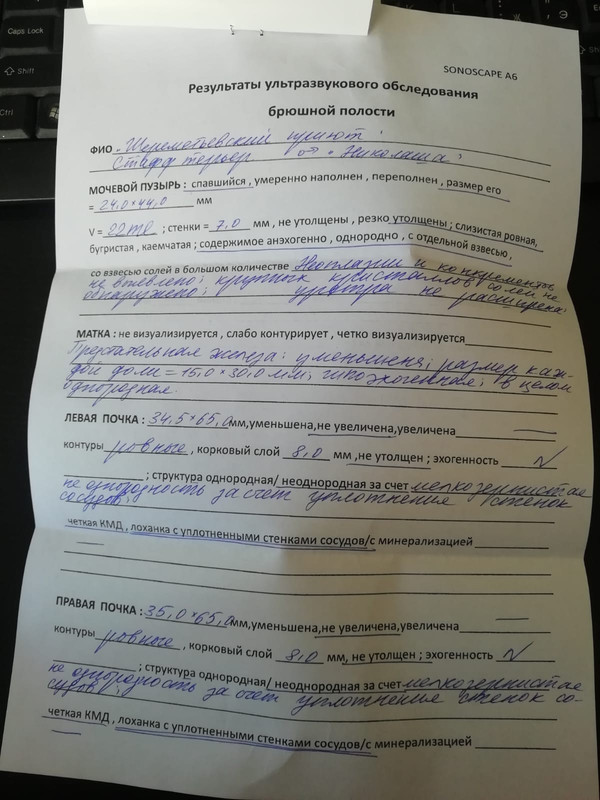 Caps Lock
Shift
Ctrl
Э
Shift
SONOSCAPE A6
Результаты ультразвукового обследования
брюшной полости
ФИО „Шереметьевский приют"
Стафф терьер. „Николаша"
МОЧЕВОЙ ПУЗЫРЬ : спавшийся , умеренно наполнен , переполнен , размер его
= 24,0×44,0 мм
V = 22ml ; стенки = 7,0 мм , не утолщены , резко утолщены ; слизистая ровная,
бугристая , каемчатая ; содержимое анэхогенно , однородно , с отдельной взвесью ,
со взвесью солей в большом количестве Неоплазии и конкременты
не выявлено; крупных кристаллов солей не
обнаружено; уретра не расширена.
МАТКА : не визуализируется , слабо контурирует , четко визуализируется
Предстательная железа: уменьшена; размер каж-
дой доли = 15,0×30,0 мм; гипоэхогенная; в целом
однородная.
ЛЕВАЯ ПОЧКА : 34,5×65,0 мм,уменьшена,не увеличена,увеличена
контуры ровные , корковый слой 8,0 мм ,не утолщен ; эхогенность N
; структура однородная/ неоднородная за счет мелкозернистая
не однородность за счет уплотнения стенок
сосудов;
четкая КМД , лоханка с уплотненными стенками сосудов/с минерализацией
ПРАВАЯ ПОЧКА : 35,0×65,0 мм,уменьшена,не увеличена,увеличена
контуры ровные , корковый слой 8,0 мм, не утолщен ; эхогенность N
; структура однородная/ неоднородная за счет мелкозернистая
не однородность за счет уплотнения стенок со-
судов;
четкая КМД , лоханка с уплотненными стенками сосудов/с минерализацией